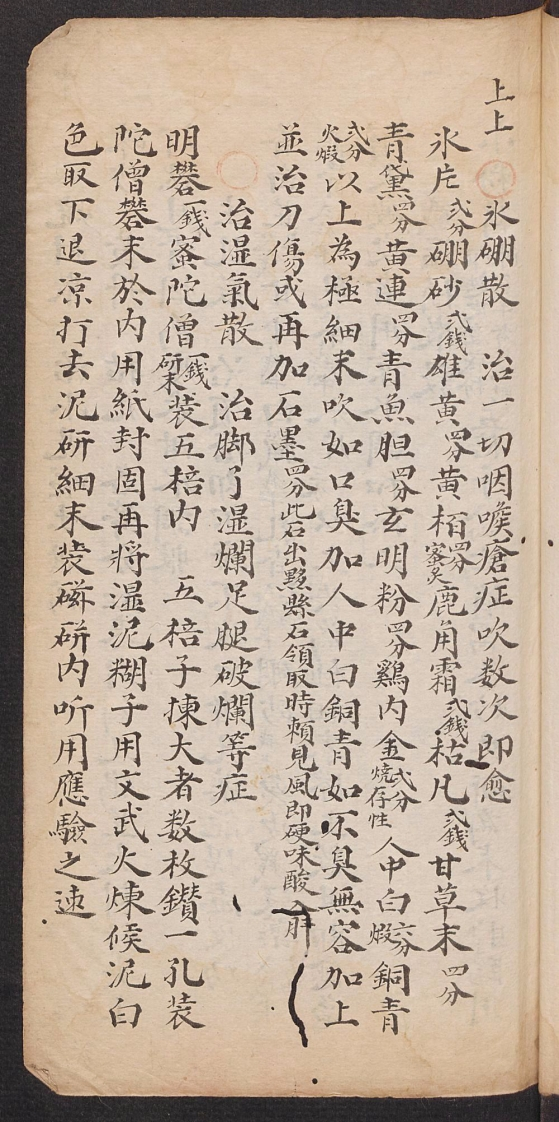 上上
氷硼散　治一切咽喉瘡症吹数次即愈
氷片弍分硼砂弍錢雄黄四分黄栢四分蜜炙鹿角霜弍錢枯凡弍錢甘草末四分
青黛四分黄連四分青魚胆四分玄明粉四分鷄内金弍分燒存性人中白六分煅銅青
弍分火煅以上為極細末吹如口臭加人中白銅青如不臭無容加上
並治刀傷或再加石墨四分此石出黟縣石領取時頼見風即硬味酸
治湿氣散　治脚了湿爛足腿破爛等症
明礬一錢蜜陀僧一錢研末装五棓内　五棓子揀大者数枚鑽一孔装
陀僧礬末於内用紙封固再將湿泥糊子用文武火煉候泥白
色取下退凉打去泥研細末装磁研内听用應驗之速